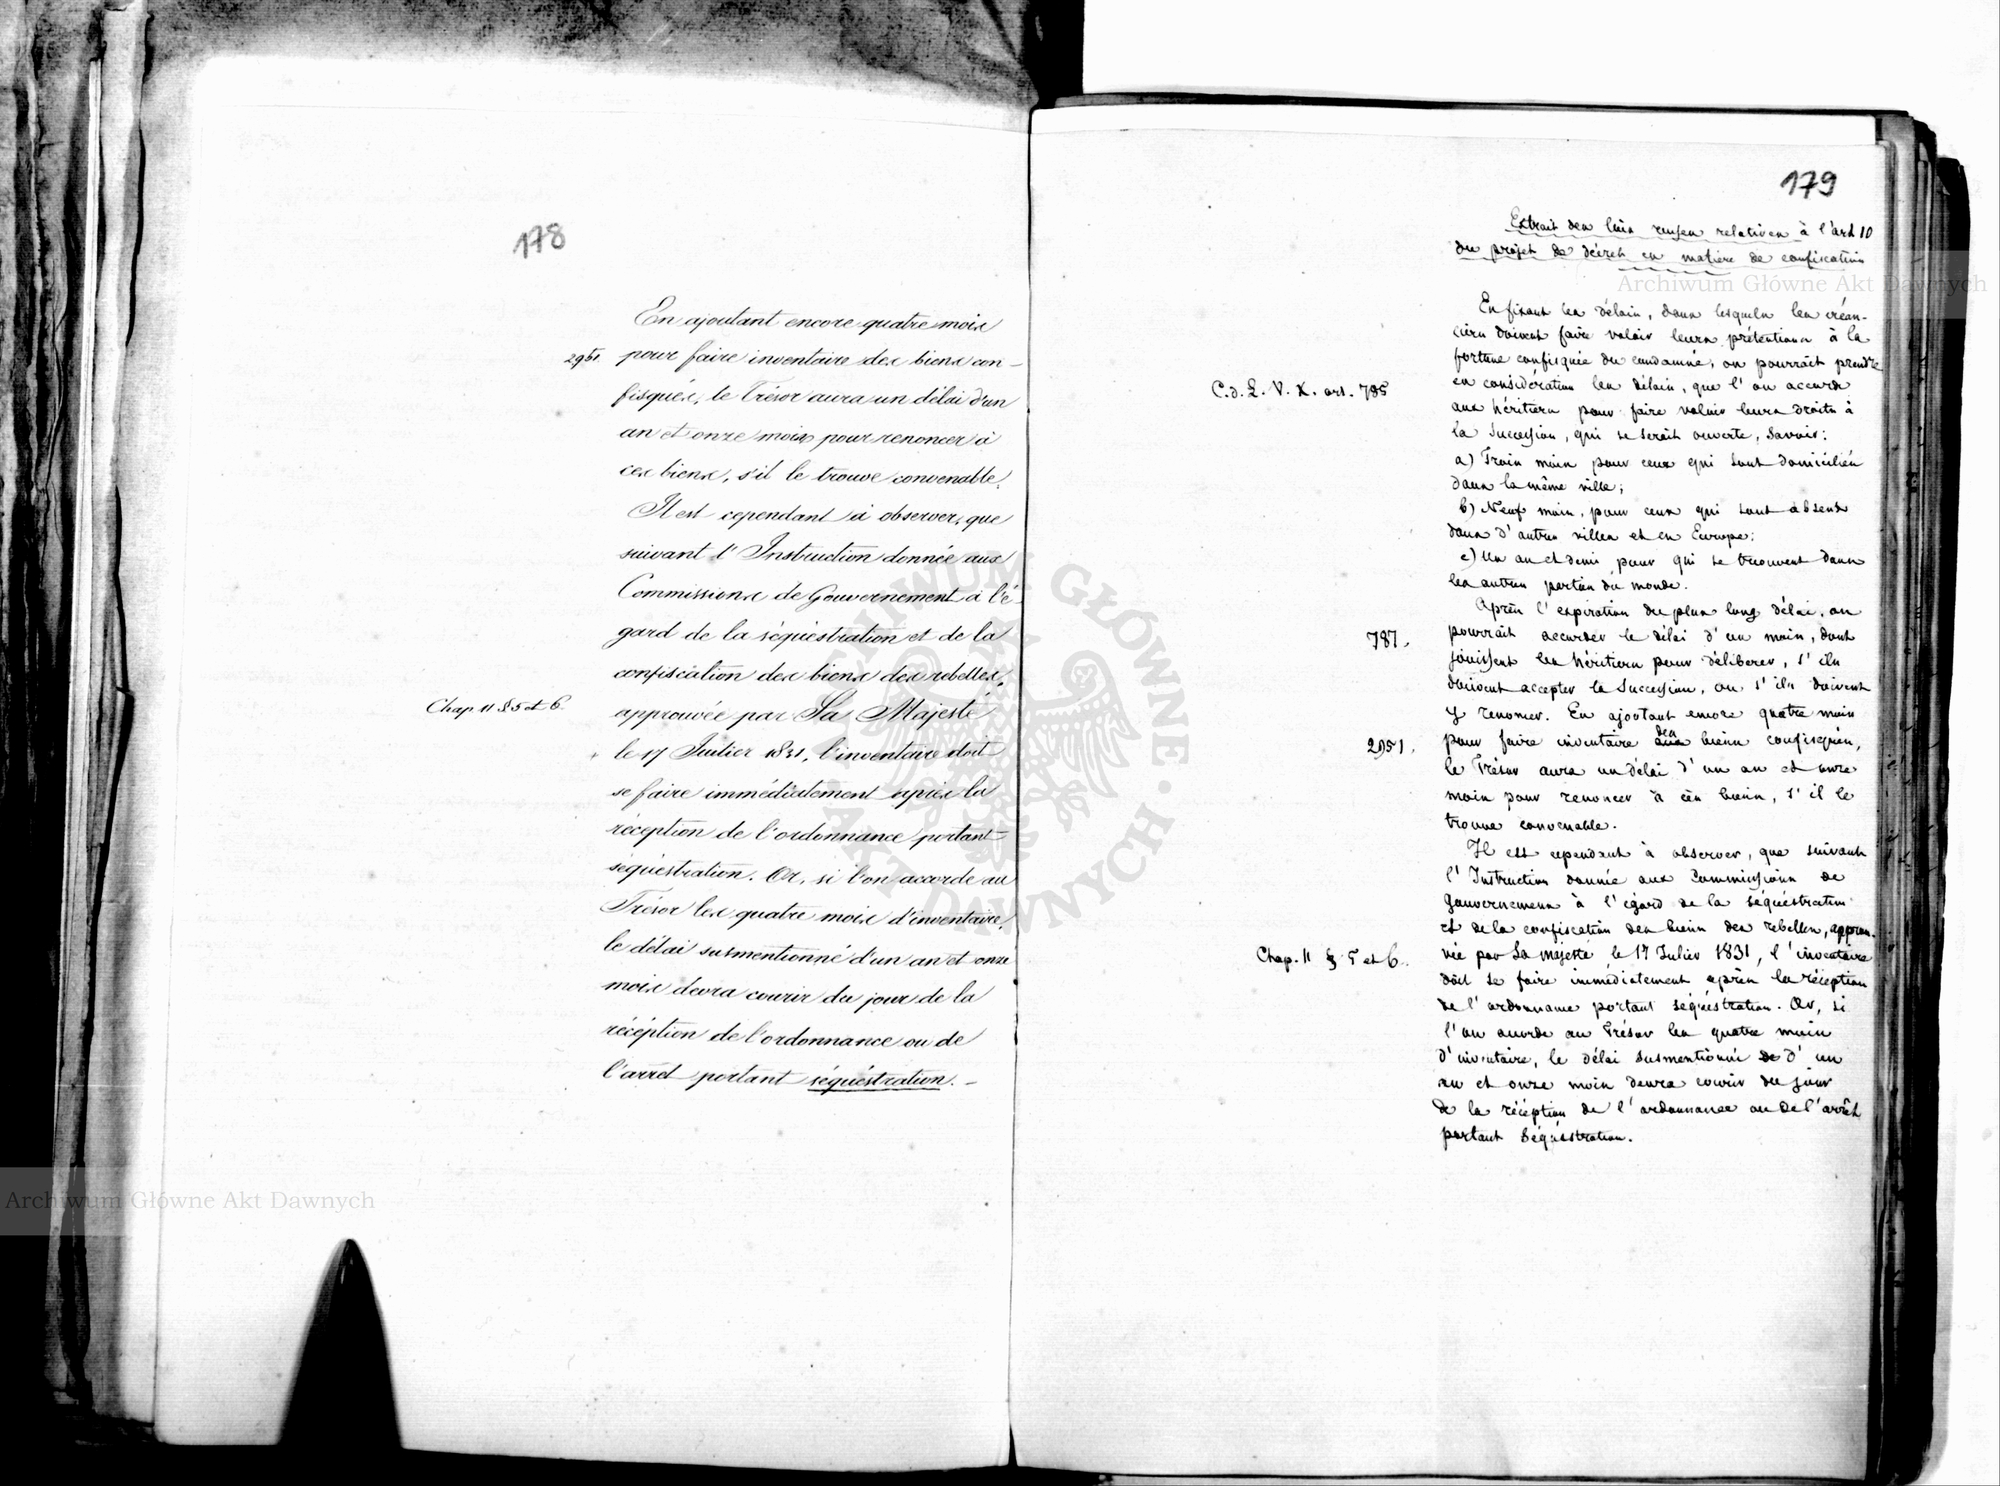 178
En ajoutant encore quatre mois
2951. pour faire inventaire des biens con-
fisqués, le Trésor aura un délai d'un
an et onze mois pour renoncer à
ces biens, s'il le trouve convenable.
Il est cependant à observer, que
suivant l'Instruction donnée aux
Commissions de Gouvernement à l'é-
gard de la séquéstration et de la
confiscation des biens des rebelles,
Chap. 11 § 5 et 6. approuvée par Sa Majesté
le 17 Juilier 1831, l'inventaire doit
se faire immédiatement après la
réception de l'ordonnance portant
séquéstration. Or, si l'on accorde au
Trésor les quatre mois d'inventaire,
le délai susmentionné d'un an et onze
mois devra courir du jour de la
réception de l'ordonnance ou de
l'arret portant séquéstration. -
179
Extrait des lois russes relatives à l'art 10
du projet de décret en matière de confiscation
En fixant les délais, dans lesquels les créan-
ciers doivent faire valoir leurs prétentions à la
fortune confisquée du condamné, on pourrait prendre
C. d. L. V. X. art. 785 en considération les délais, que l'on accorde
aux héritiers pour faire valoir leurs droits à
la succession, qui se serait ouverte, savoir:
a) Trois mois pour ceux qui sont domiciliés
dans la même ville;
b) Neuf mois, pour ceux qui sont absents
dans d'autres villes et en Europe;
c) Un an et demi pour qui se trouvent dans
les autres parties du monde.
Après l'expiration du plus long délai, on
787. pourrait accorder le délai d'un mois, dont
jouissent les héritiers pour déliberer, s'ils
doivent accepter la succession, ou s'ils doivent
y renoncer. En ajoutant encore quatre mois
2951. pour faire inventaire des biens confisqués,
le Trésor aura un délai d'un an et onze
mois pour renoncer à ces biens, s'il le
trouve convenable.
Il est cependant à observer, que suivant
l'Instruction donnée aux Commissions de
Gouvernement à l'égard de la séquéstration
et de la confiscation des biens des rebelles, approu-
Chap. 11 § 5 et 6. vée par Sa Majesté le 17 Julier 1831, l'inventaire
doit se faire immédiatement après la réception
de l'ordonnance portant séquéstration. Or, si
l'on accorde au Trésor les quatre mois
d'inventaire, le délai susmentionné de d'un
an et onze mois devra courir du jour
de la réception de l'ordonnance ou de l'arrêt
portant séquéstration.
Archiwum Główne Akt Dawnych
Archiwum Główne Akt Dawnych
ARCHIWUM GŁÓWNE AKT DAWNYCH